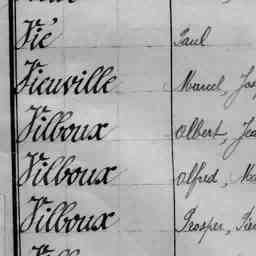 Vié Paul
Vieuville Marcel,
Vilboux Albert,
Vilboux Alfred,
Vilboux Prosper,